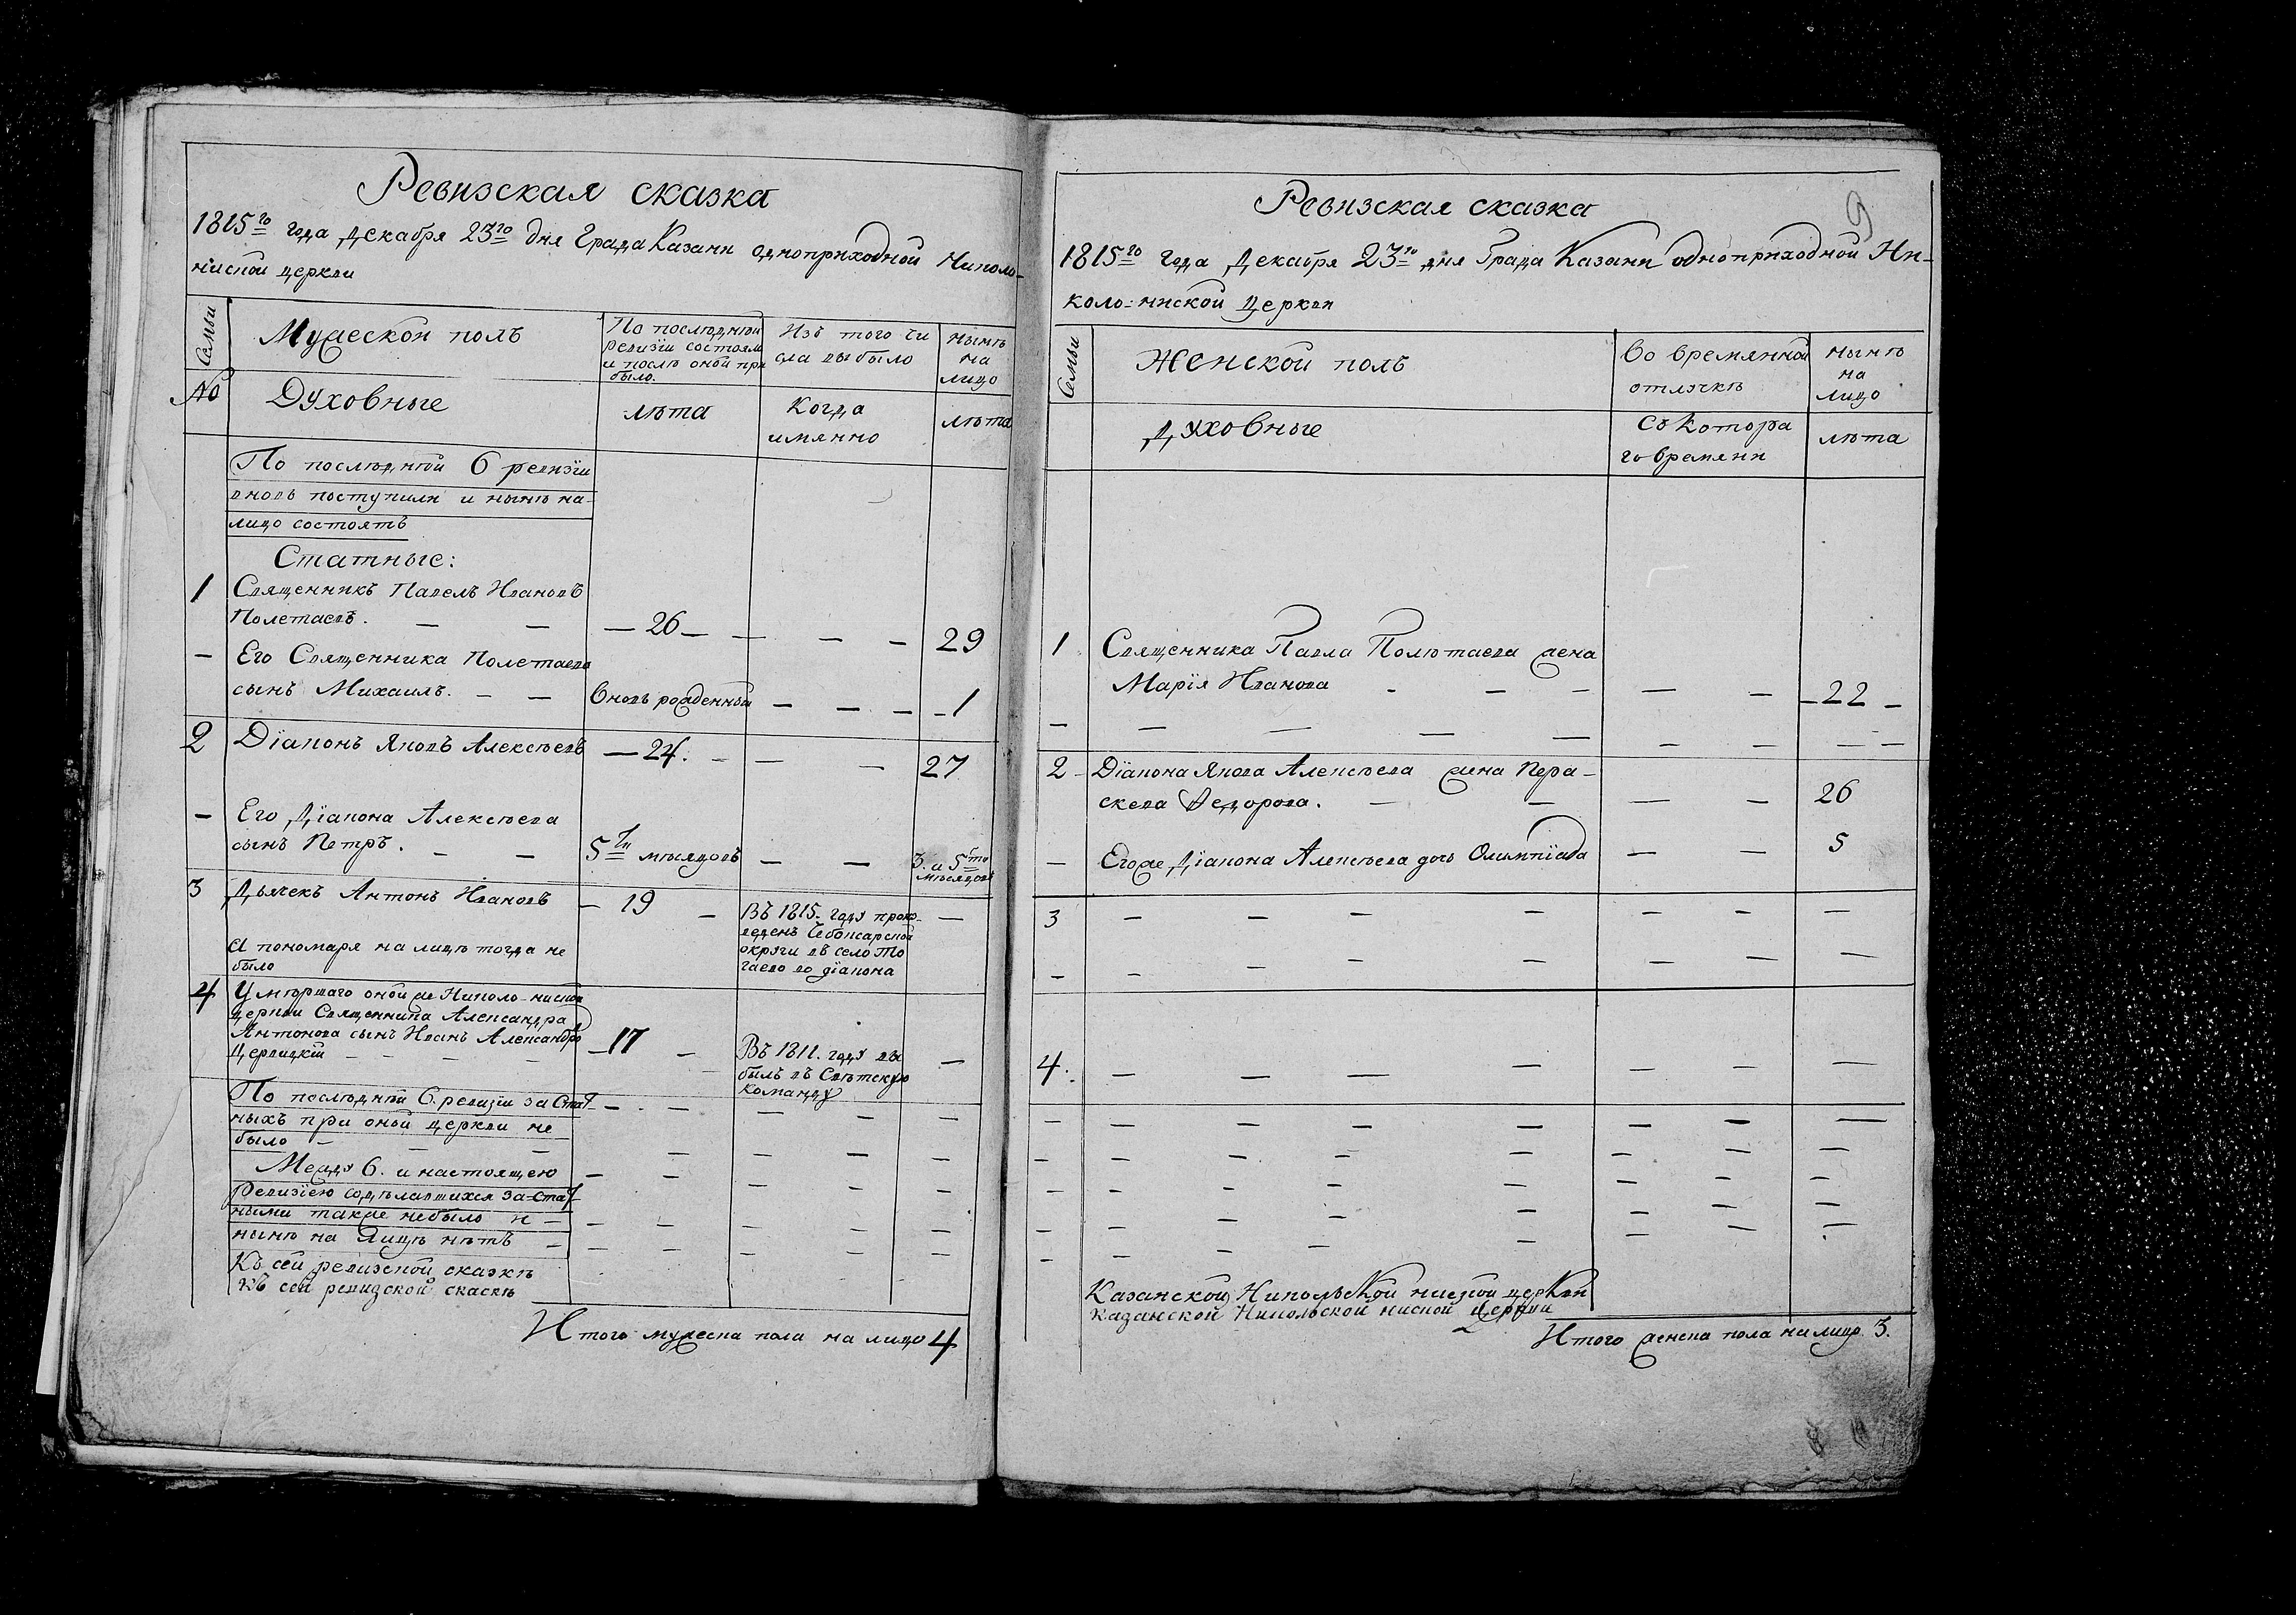 Ревизская сказка
1815го года Декабря 23го дня Града Казани одноприходной Николо-
ниской церкви
Семьи
Мужескои полъ
По последнѣи
ревизїи состояло
и послѣ оной при
было.
Изъ того чи
сла выбыло
нынѣ
на
лицо
№
Духовные
лѣта
Когда
имянно
лѣта
По послѣднѣй 6 ревизїи
вновь поступили и нынѣ на-
лицо состоятъ
Статные:
1 Священникъ Павелъ Ивановъ
Полетаевъ. — — — 26 — — — — 29
— Его Священника Полетаева
сынъ Михаилъ. — — Вновь рожденный — — — — 1
2 Дїаконъ Яковъ Алексѣевъ — 24. — — — 27
— Его Дїакона Алексѣева
сынъ Петръ. — — 5ти мѣсяцовъ — — 3. и 5ть
мѣсяцовъ
3 Дьячекъ Антонъ Ивановъ — 19 — Въ 1815. году произ-
веденъ Чебоксарской
округи въ село То
гаево во дїакона
—
А пономаря на лицѣ тогда не
было
4 Умѣршаго оной же Николо-ниской
церкви Священника Александра
Антонова сынъ Иванъ Александро
Цервицкїй — — — — — 17 — Въ 1811. году вы
былъ въ Свѣтскую
команду
—
По послѣдней 6. ревизїи за Стат-
ныхъ при оной церкви не
было —
Между 6. и настоящею
Ревизїею содѣлавшихся за-Стат-
ными также небыло и —
нынѣ на Лицѣ нѣтъ —
Къ сей ревизской сказкѣ
Къ сей ревизской скаскѣ
Итого мужеска пола на лицо 4
9
Ревизская сказка
1815го года Декабря 23го дня Града Казани одноприходной Ни-
коло-ниской Церкви
Семьи
Женской полъ
Во времянной
отлучкѣ
нынѣ
на
лицо
Духовные
Съ котора
го времяни
лѣта
1 Священника Павла Полѣтаева жена
Марїя Иванова — — — — — — 22 —
2 Дїакона Якова Алексѣева жена Пера-
скева Федорова. — — — — 26
— Его же Дїакона Алексѣева дочь Олимпїада — — 5
3 — — — — — —
4. — — — — — —
Казанской Никольской ниской церкви
Казанской Никольской ниской Церкви
Итого женска пола на лицо 3.